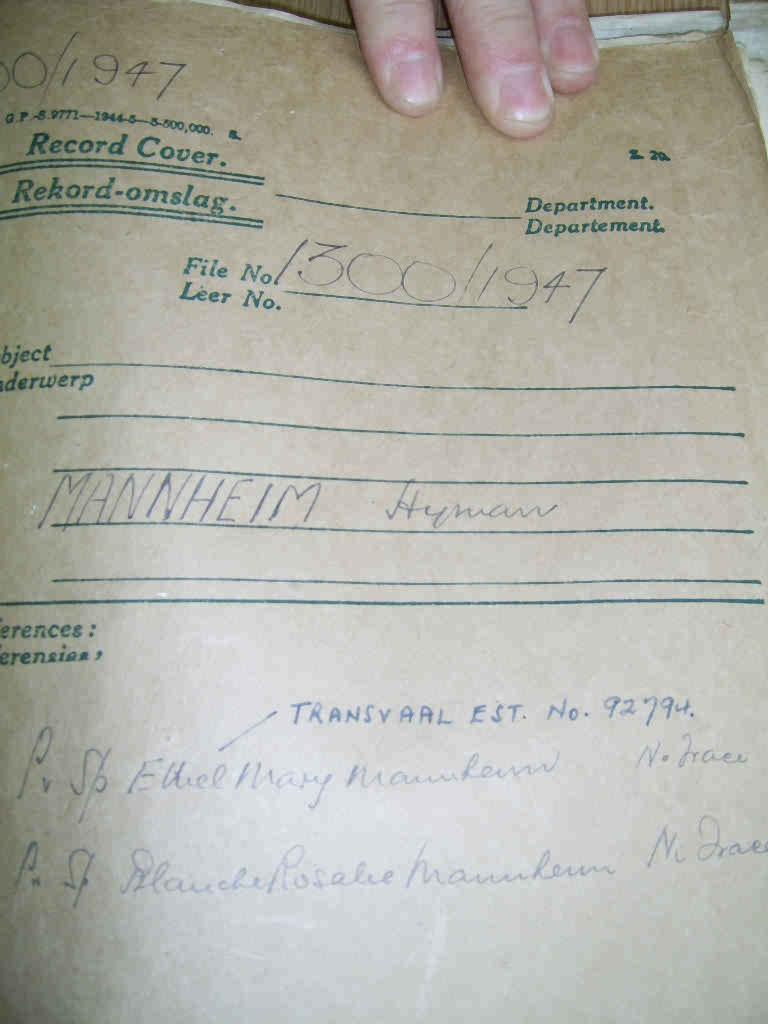 00/1947
G.P.-S.9771—1944-5—5-500,000. S.
Record Cover.
Z. 20.
Rekord-omslag.
Department.
Departement.
File No. 1300/1947
Leer No.
bject
nderwerp
MANNHEIM Hyman
erences:
erensies,
TRANSVAAL EST. No. 92794.
Pr Sp Ethel Mary Mannheim No Trace
Pr Sp Blanche Rosalie Mannheim No Trace